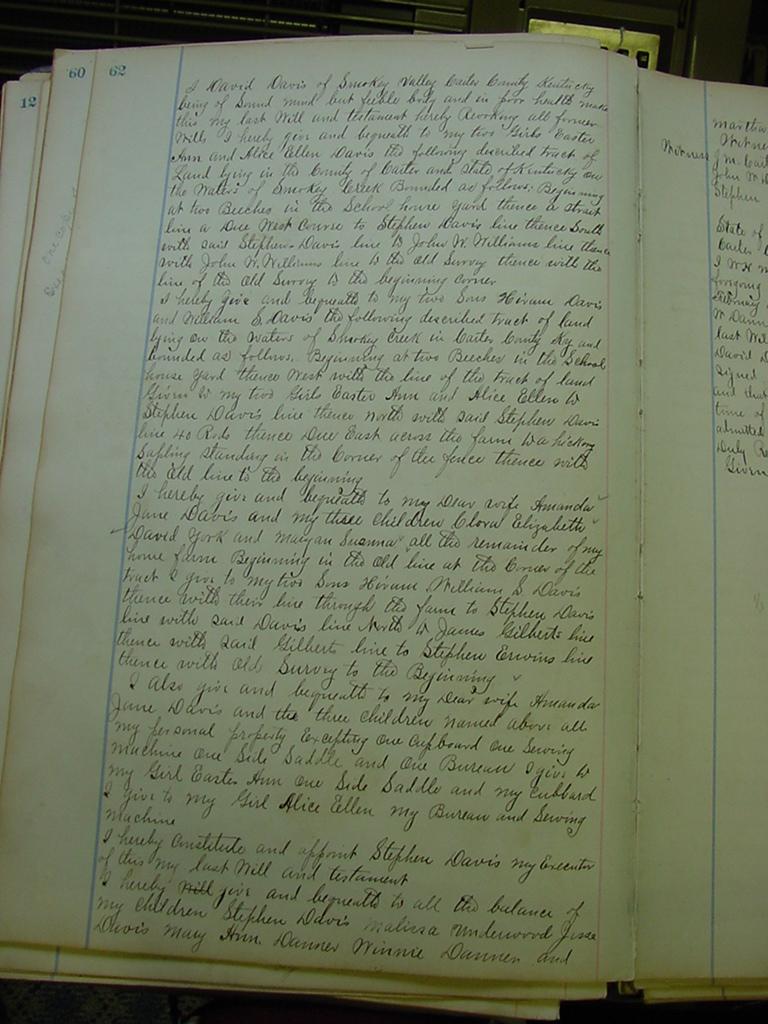 12
60
62
I David Davis of Smokey Valley Carter County Kentucky
being of Sound mind but feeble body and in poor health make
this my last Will and testament hereby Revoking all former
Wills I hereby give and begueath to my two Girls Easter
Ann and Alice Ellen Davis the following described tract of
Land lying in the County of Carter and State of Kentucky on
the Waters of Smokey Creek Bounded as follows. Beginning
at two Beeches in the School house yard thence a strait
line a Due West Course to Stephen Davis line thence South
with said Stephen Davis line to John W. Williams line thence
with John W. Williams line to the old Survey thence with the
line of the old Survey to the beginning corner
I hereby give and begueath to my two Sons Hiram Davis
and William S. Davis the following described tract of land
lying on the Waters of Smokey Creek in Carter County Ky and
bounded as follows. Beginning at two Beeches in the School
house yard thence West with the line of the tract of land
Given to my two Girls Easter Ann and Alice Ellen to
Stephen Davis line thence North with said Stephen Davis
line 40 Rods thence Due East across the farm to a hickory
Sapling standing in the Corner of the fence thence with
the old line to the beginning
I hereby give and begueath to my Dear wife Amanda
Jane Davis and my three Children Clora Elizabeth
David York and Maryan Susanna all the remainder of my
home farm Beginning in the old line at the Corner of the
tract I give to my two Sons Hiram William S. Davis
thence with their line through the farm to Stephen Davis
line with said Davis line North to James Gilberts line
thence with said Gilberts line to Stephen Erwins line
thence with old Survey to the Beginning
I also give and begueath to my Dear wife Amanda
Jane Davis and the three Children named above all
my personal property Excepting One Cupboard One Sewing
Machine One Side Saddle and One Bureau I give to
my Girl Easter Ann One Side Saddle and my cubbard
I give to my Girl Alice Ellen my Bureau and Sewing
Machine
I hereby Constitute and appoint Stephen Davis my Executor
of this my last Will and testament
I hereby will give and begueath to all the balance of
my Children Stephen Davis Malissa Underwood Jesse
Davis Mary Ann Danner Winnie Danner and
Martha
Witness
Witness
J. M. Cart
John W.
Stephen
State of
Carter
I W
foregoing
February
W Dann
last Wil
David D
signed
and that
time of
admitted
Duly R
Given